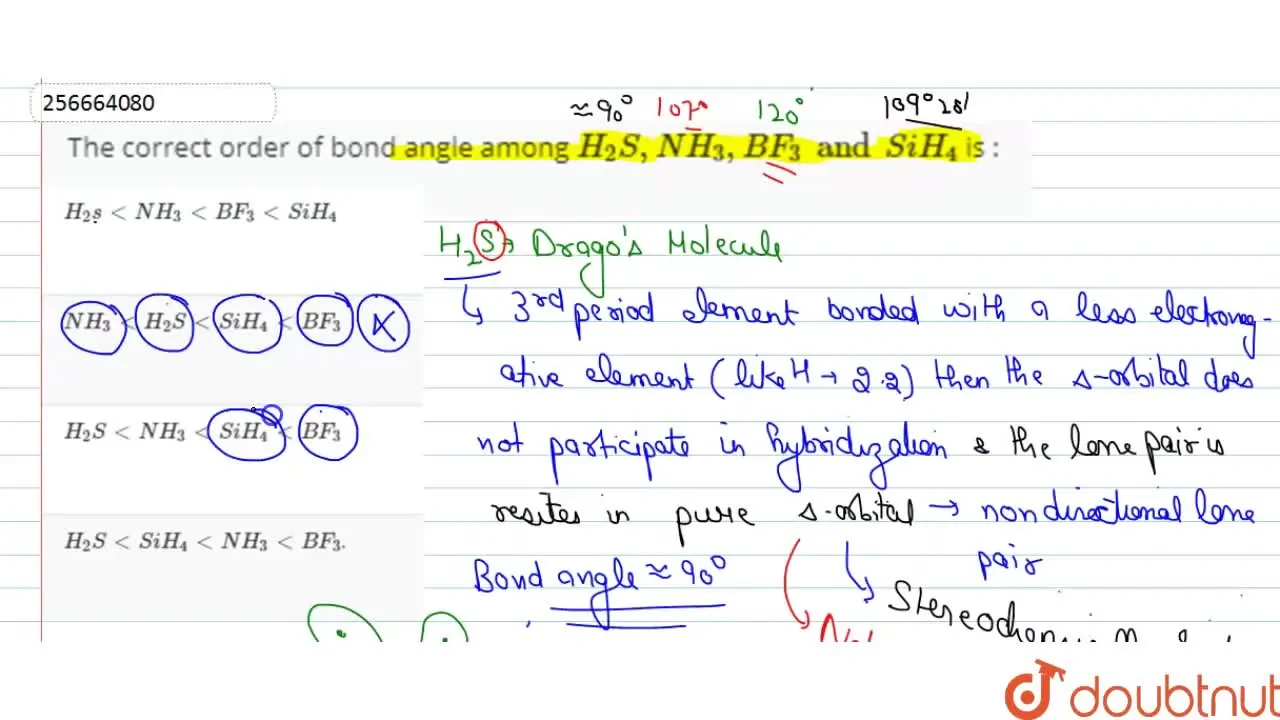 256664080
≈90° 107° 120° 109°28'
The correct order of bond angle among H₂S, NH₃, BF₃ and SiH₄ is :
H₂s < NH₃ < BF₃ < SiH₄
NH₃ < H₂S < SiH₄ < BF₃ X
H₂S < NH₃ < SiH₄ < BF₃
H₂S < SiH₄ < NH₃ < BF₃.
H₂S → Drago's Molecule
↳ 3rd period element bonded with a less electroneg-
ative element (like H → 2.2) then the s-orbital does
not participate in hybridization & the lone pair is
resites in pure s-orbital → nondirectional lone
pair
Bond angle ≈ 90°
doubtnut